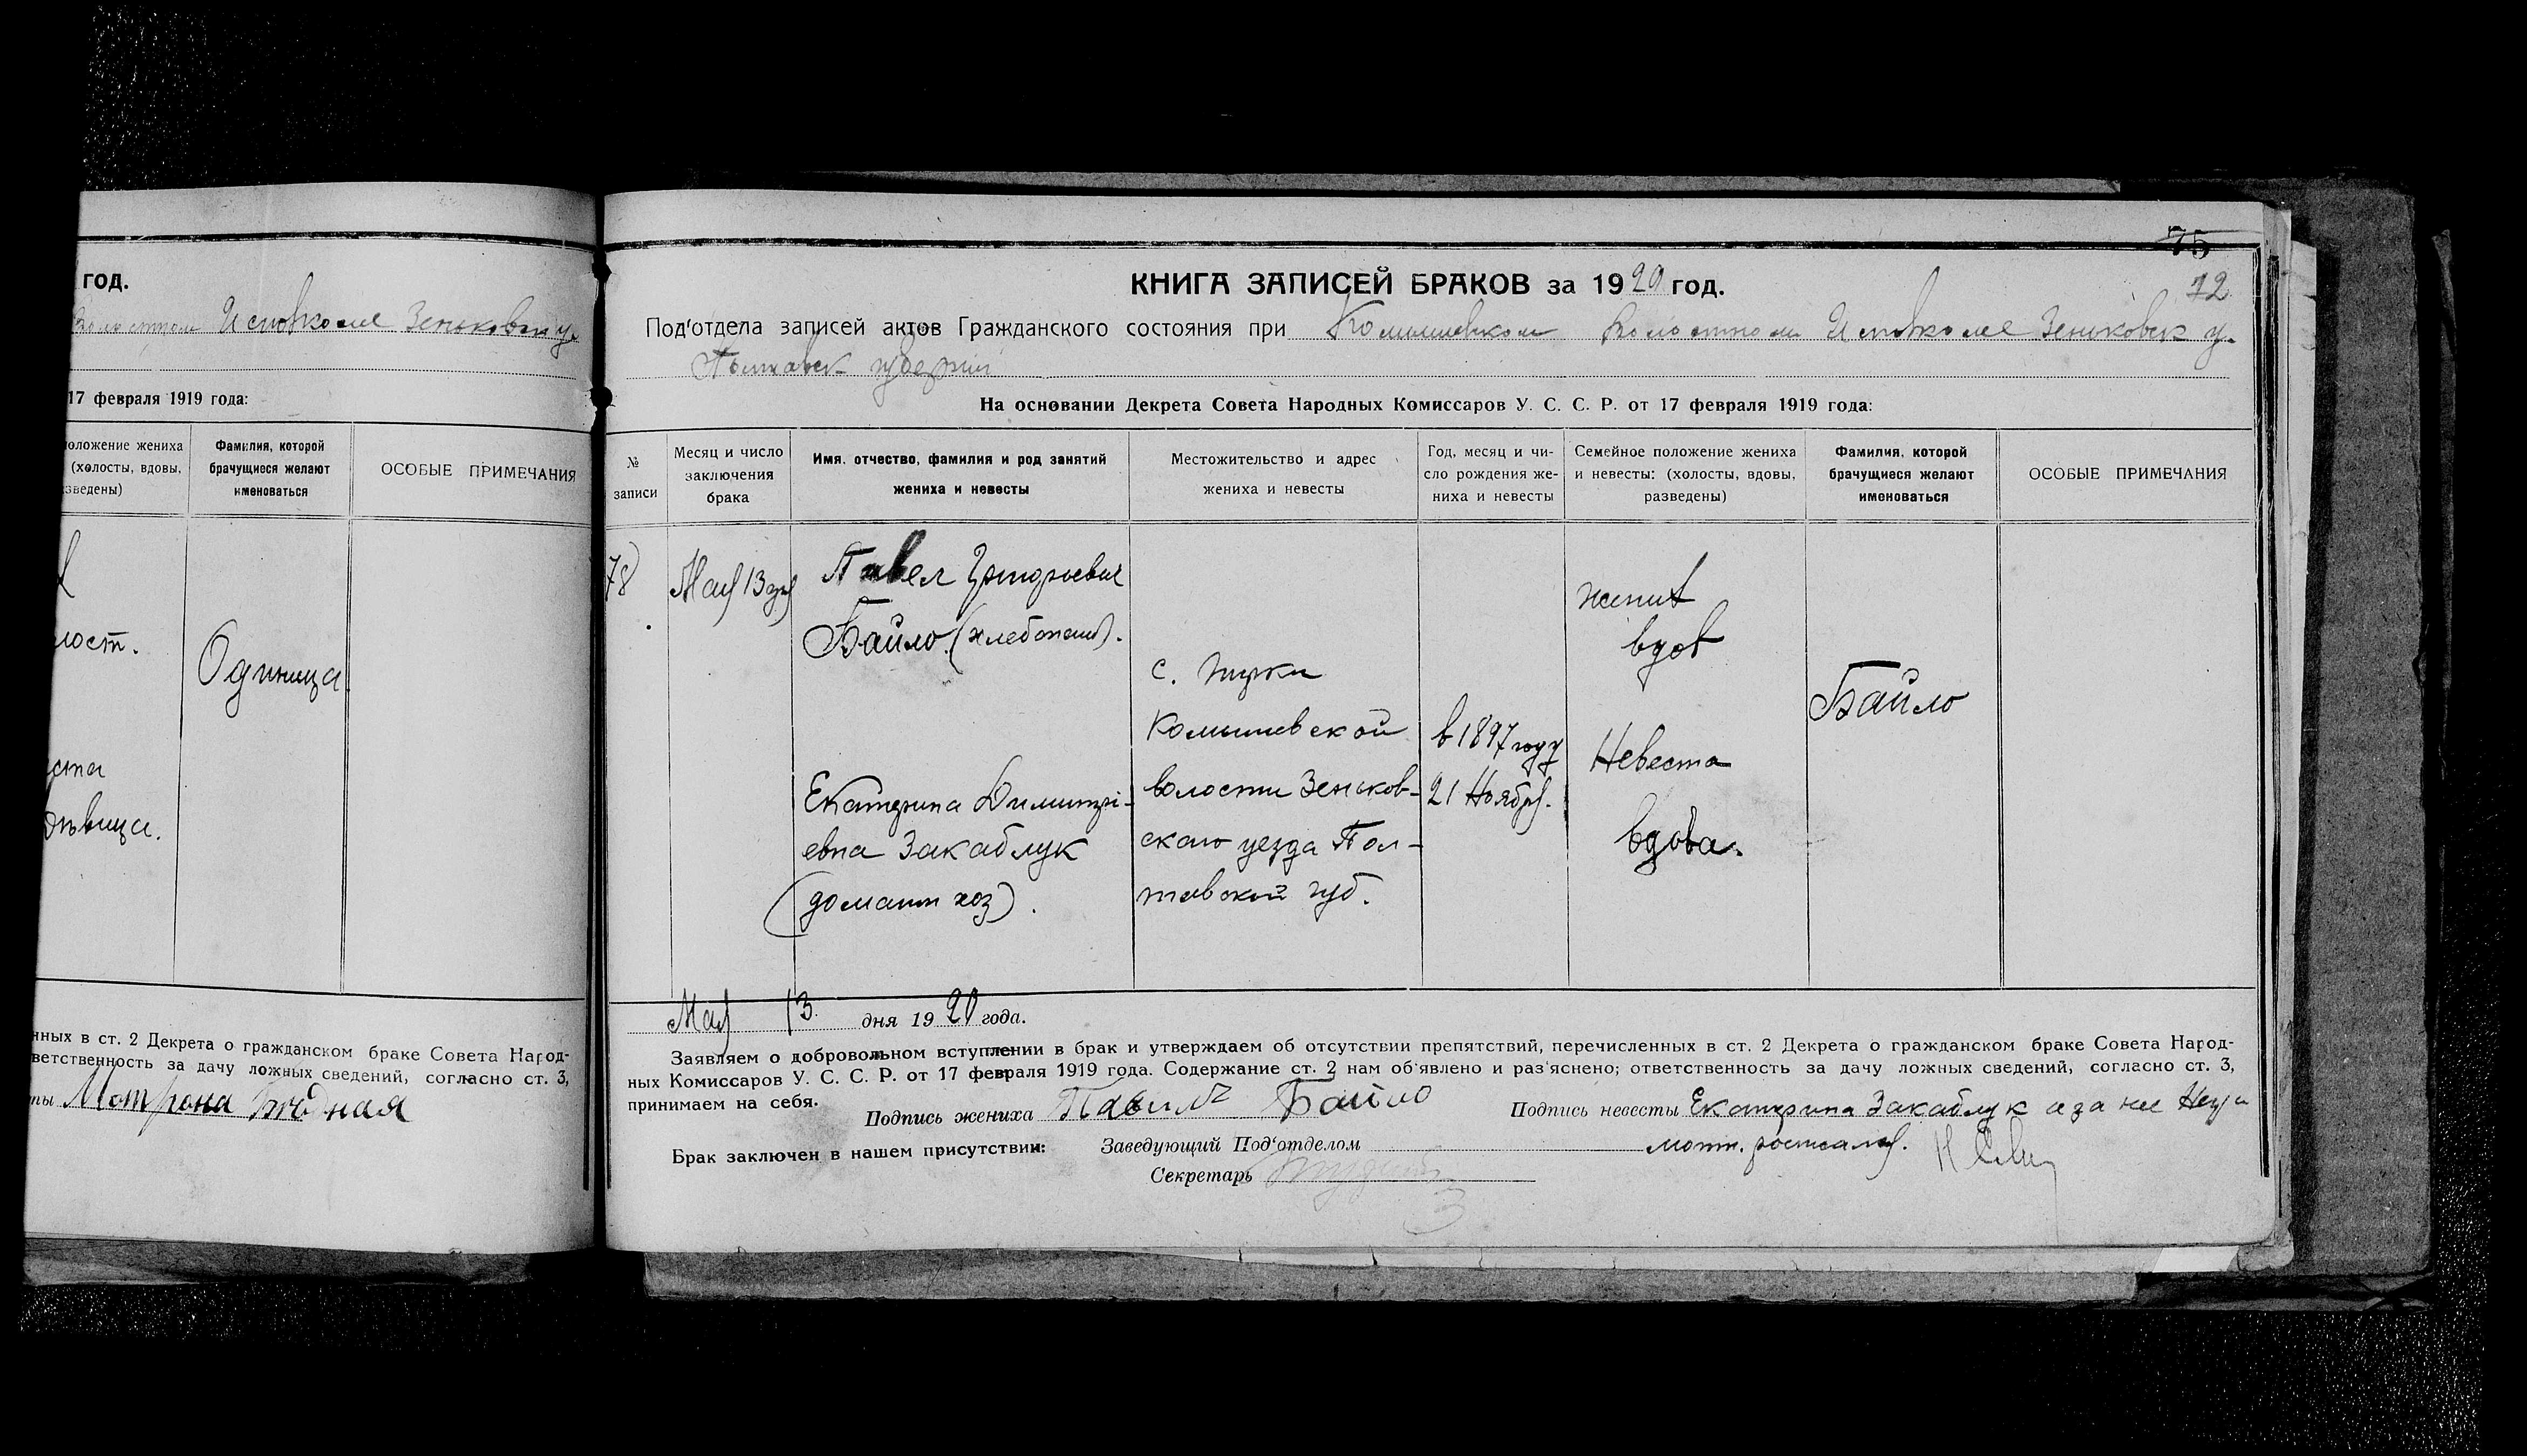 год.
Исполкоме Зеньковск у.
17 февраля 1919 года:
положение жениха
(холосты, вдовы,
разведены)
Фамилия, которой
брачущиеся желают
именоваться
ОСОБЫЕ ПРИМЕЧАНИЯ
лост.
Одиница
дѣвица.
нных в ст. 2 Декрета о гражданском браке Совета Народ-
ветственность за дачу ложных сведений, согласно ст. 3,
ты Мотрона
75
72
КНИГА ЗАПИСЕЙ БРАКОВ за 1920 год.
Под'отдела записей актов Гражданского состояния при Комышевском Волостном Исполкоме Зеньковск у.
Полтавск губернии
На основании Декрета Совета Народных Комиссаров У. С. С. Р. от 17 февраля 1919 года:
№
записи
Месяц и число
заключения
брака
Имя, отчество, фамилия и род занятий
жениха и невесты
Местожительство и адрес
жениха и невесты
Год, месяц и чи-
сло рождения же-
ниха и невесты
Семейное положение жениха
и невесты: (холосты, вдовы,
разведены)
Фамилия, которой
брачущиеся желают
именоваться
ОСОБЫЕ ПРИМЕЧАНИЯ
78)
Мая 13 дня
Павел Григорьевич
Байло (хлебопаш).
Екатерина Димитрі-
евна Закаблук
(домашн хоз).
с.
Комышевской
волости Зеньков-
скаго уезда Пол-
тавской губ.
в 1897 году
21 Ноября.
жених
вдов
Невеста
вдова.
Байло
Мая 13 дня 1920 года.
Заявляем о добровольном вступлении в брак и утверждаем об отсутствии препятствий, перечисленных в ст. 2 Декрета о гражданском браке Совета Народ-
ных Комиссаров У. С. С. Р. от 17 февраля 1919 года. Содержание ст. 2 нам об'явлено и раз'яснено; ответственность за дачу ложных сведений, согласно ст. 3,
принимаем на себя.
Подпись жениха Павилъ Байло
Подпись невесты Екатерина Закаблук а за нее
Брак заключен в нашем присутствии:
Заведующий Под'отделом
Секретарь